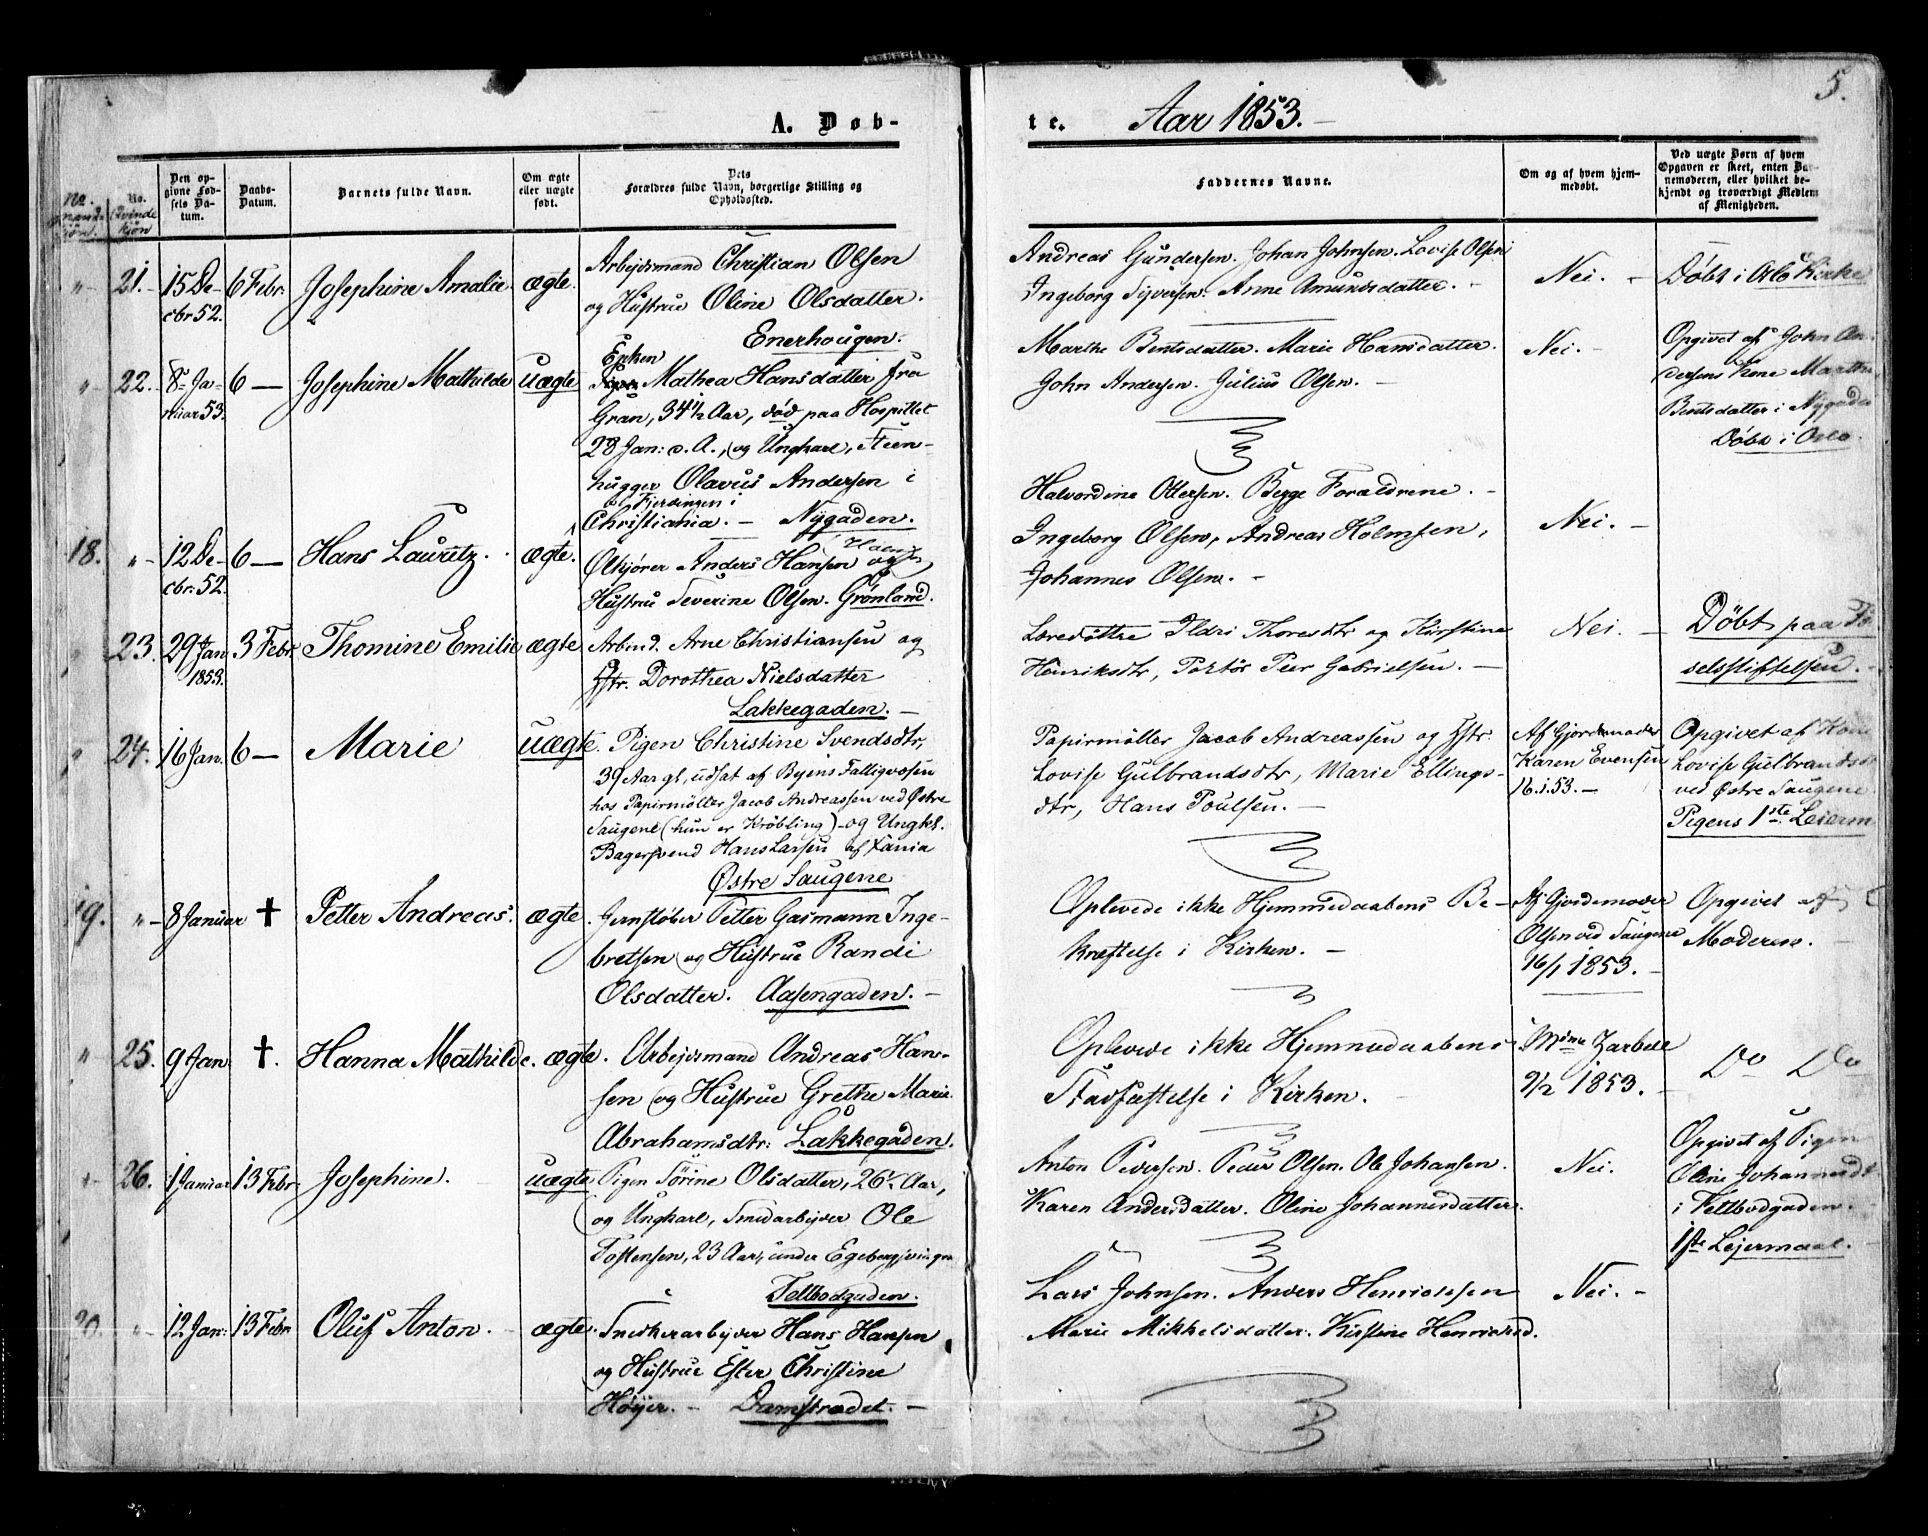 5.
A. Døb-
te. Aar 1853.
No. Mandkjøn.
No. Qvindekjøn
Den opgivne Fødsels Datum.
Daabs-Datum.
Barnets fulde Navn.
Om ægte eller uægte født.
Dets Forældres fulde Navn, borgerlige Stilling og Opholdssted.
Faddernes Navne.
Om og af hvem hjemmedøbt.
Ved uægte Børn af hvem Opgaven er skeet, enten Barnemoderen, eller hvilket bekjendt og troværdigt Medlem af Menigheden.
21. 15 De- 6 Febr. Josephine Amalie. ægte.
cbr 52.
Arbejdsmand Christian Olsen
og Hustrue Oline Olsdatter.
Enerhougen.
Andreas Gundersen. Johan Johnsen. Lovise Olsen
Ingeborg Syversen. Anne Amundsdatter.
Nei.
Døbt i Oslo Kirke
22. 8 Ja- 6 — Josephine Mathilde uægte
nuar 53.
Enken
Mathea Hansdatter fra
Gran, 34½ Aar, død paa Hospitlet
28 Jan: d. A., og Ungkarl, Steen-
hugger Olavus Andersen i
Fjerdingen i
Christiania. — Nygaden.
Marthe Bentsdatter. Marie Hansdatter.
John Andersen. Julius Olsen.
Nei.
Opgivet af John An-
dersens Kone Marthe
Bentsdatter i Nygaden
Døbt i Oslo.
18. 12 De- 6 — Hans Lauritz. ægte.
cbr. 52.
Ølkjører Anders Hansen og
Hustrue Severine Olsen. Grønland.
Halvordine Ottersen. Begge Forældrene.
Ingeborg Olsen, Andreas Holmsen,
Johannes Olsen.
Nei.
23. 29 Jan 3 Febr. Thomine Emilie ægte
1853.
Arbmd. Arne Christiansen og
Hstr. Dorothea Nielsdatter
Lakkegaden.
Læredøttre Ildri Thoresdtr og Kirstine
Henriksdtr, Portør Peer Gabrielsen.
Nei.
Døbt paa Fø-
selsstiftelsen.
24. 16 Jan. 6 — Marie uægte.
Pigen Christine Svendsdtr,
39 Aar gl, udsat af Byens Fattigvæsen
hos Papirmøller Jacob Andreassen ved Østre
Saugene (hun er Krøbling) og Ungkl.
Bagersvend Hans Larsen af Xania
Østre Saugene
Papirmøller Jacob Andreassen og Hstr.
Lovise Gulbrandsdtr, Marie Ellings-
dtr, Hans Poulsen.
Af Gjordemoder
Karen Evensen
16.1.53.
Opgivet af Kone
Lovise Gulbrandsd
ved Østre Saugene
Pigens 1ste Leierm
19. 8 Januar † Petter Andreas. ægte.
Jernstøber Petter Gasmann Inge-
bretsen og Hustrue Randi
Olsdatter. Aasengaden.
Oplevede ikke Hjemmedaabens Be-
kræftelse i Kirken.
Af Gjordemoder
Olsen ved Saugene
16/1 1853.
Opgivet af
Moderen.
25. 9 Jan. †. Hanna Mathilde. ægte.
Arbejdsmand Andreas Han-
sen og Hustrue Grethe Marie
Abrahamsdtr: Lakkegaden.
Oplevede ikke Hjemmedaabens
Stadfæstelse i Kirken.
Mme Zarbell
9/2 1853.
Do Do
26. 1 Januar 13 Febr. Josephine. uægte
Pigen Sørine Olsdatter, 26 Aar,
og Ungkarl, Smedarbejder Ole
Tostensen, 23 Aar, under Egebergjeringen
Teltbodgaden.
Anton Pedersen. Peder Olsen. Ole Johansen.
Karen Andersdatter. Oline Johannesdatter.
Nei.
Opgivet af Pigen
Oline Johannesdt
i Teltbodgaden.
1ste Lejermaal.
20. 12 Jan: 13 Febr Oluf Anton. ægte.
Snedkerarbejder Hans Hansen
og Hustrue Ester Christine
Høyer. — Damstrædet.
Lars Johnsen. Anders Henriksen
Marie Mikkelsdatter. Kirstine Henriksd.
Nei.